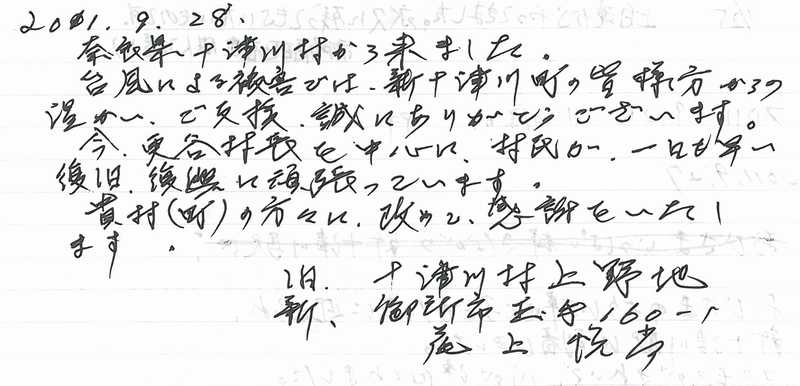 2011.9.28.
奈良県十津川村から来ました。
台風による被害では、新十津川町の皆様方からの
温かい、ご支援、誠にありがとうございます。
今、更谷村長を中心に、村民が、一日も早い
復旧、復興に頑張っています。
貴村(町)の方々に、改めて、感謝をいたし
ます。
旧、十津川村上野地
新、御所市玉手160-1
尾上